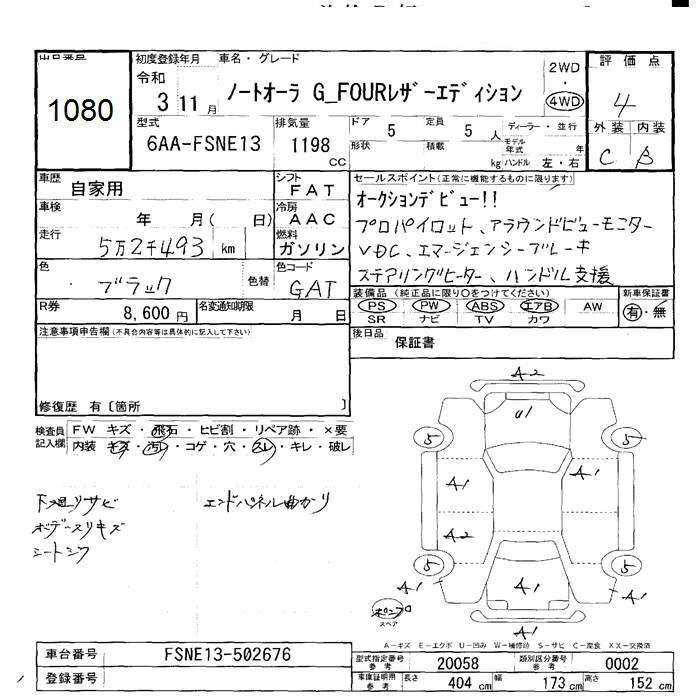 初度登録年月 車名・グレード
1080
令和
3 11月
ノートオーラ G_FOURレザーエディション
2WD
・
4WD
評価点
4
型式 排気量 ドア 定員 ディーラー・並行
6AA-FSNE13 1198 CC 5 5 人
形状 積載 kg モデル年式 年
ハンドル 左・右
外装 内装
C B
車歴 自家用
シフト FAT
車検 年 月( 日)
冷房 AAC
走行 5万2千493 km
燃料 ガソリン
色 ブラック 色替
色コード GAT
R券 8,600円
名変通知期限 月 日
セールスポイント(正常に機能するものに限ります)
オークションデビュー!!
プロパイロット、アラウンドビューモニター
VDC、エマージェンシーブレーキ
ステアリングヒーター、ハンドル支援
装備品 (純正品に限り○をつけてください) 新車保証書
PS PW ABS エアB AW 有・無
SR ナビ TV カワ
後日品 保証書
注意事項申告欄(不具合内容等は具体的に記入して下さい)
修復歴 有〔箇所 〕
検査員記入欄
FW キズ・飛石・ヒビ割・リペア跡・×要
内装 キズ・汚れ・コゲ・穴・スレ・キレ・破レ
下廻りサビ エンドパネル曲がり
ボデースリキズ
シートシワ
A2
U1
5 5
A1 A1
A2
5 5
A1 A1 A1
スペア
A1
A-キズ E-エクボ U-凹み W-補修跡 S-サビ C-腐食 XX-交換済
車台番号 FSNE13-502676
登録番号
型式指定番号 参考 20058 類別区分番号 参考 0002
車庫証明用 参考 長さ 404 cm 幅 173 cm 高さ 152 cm